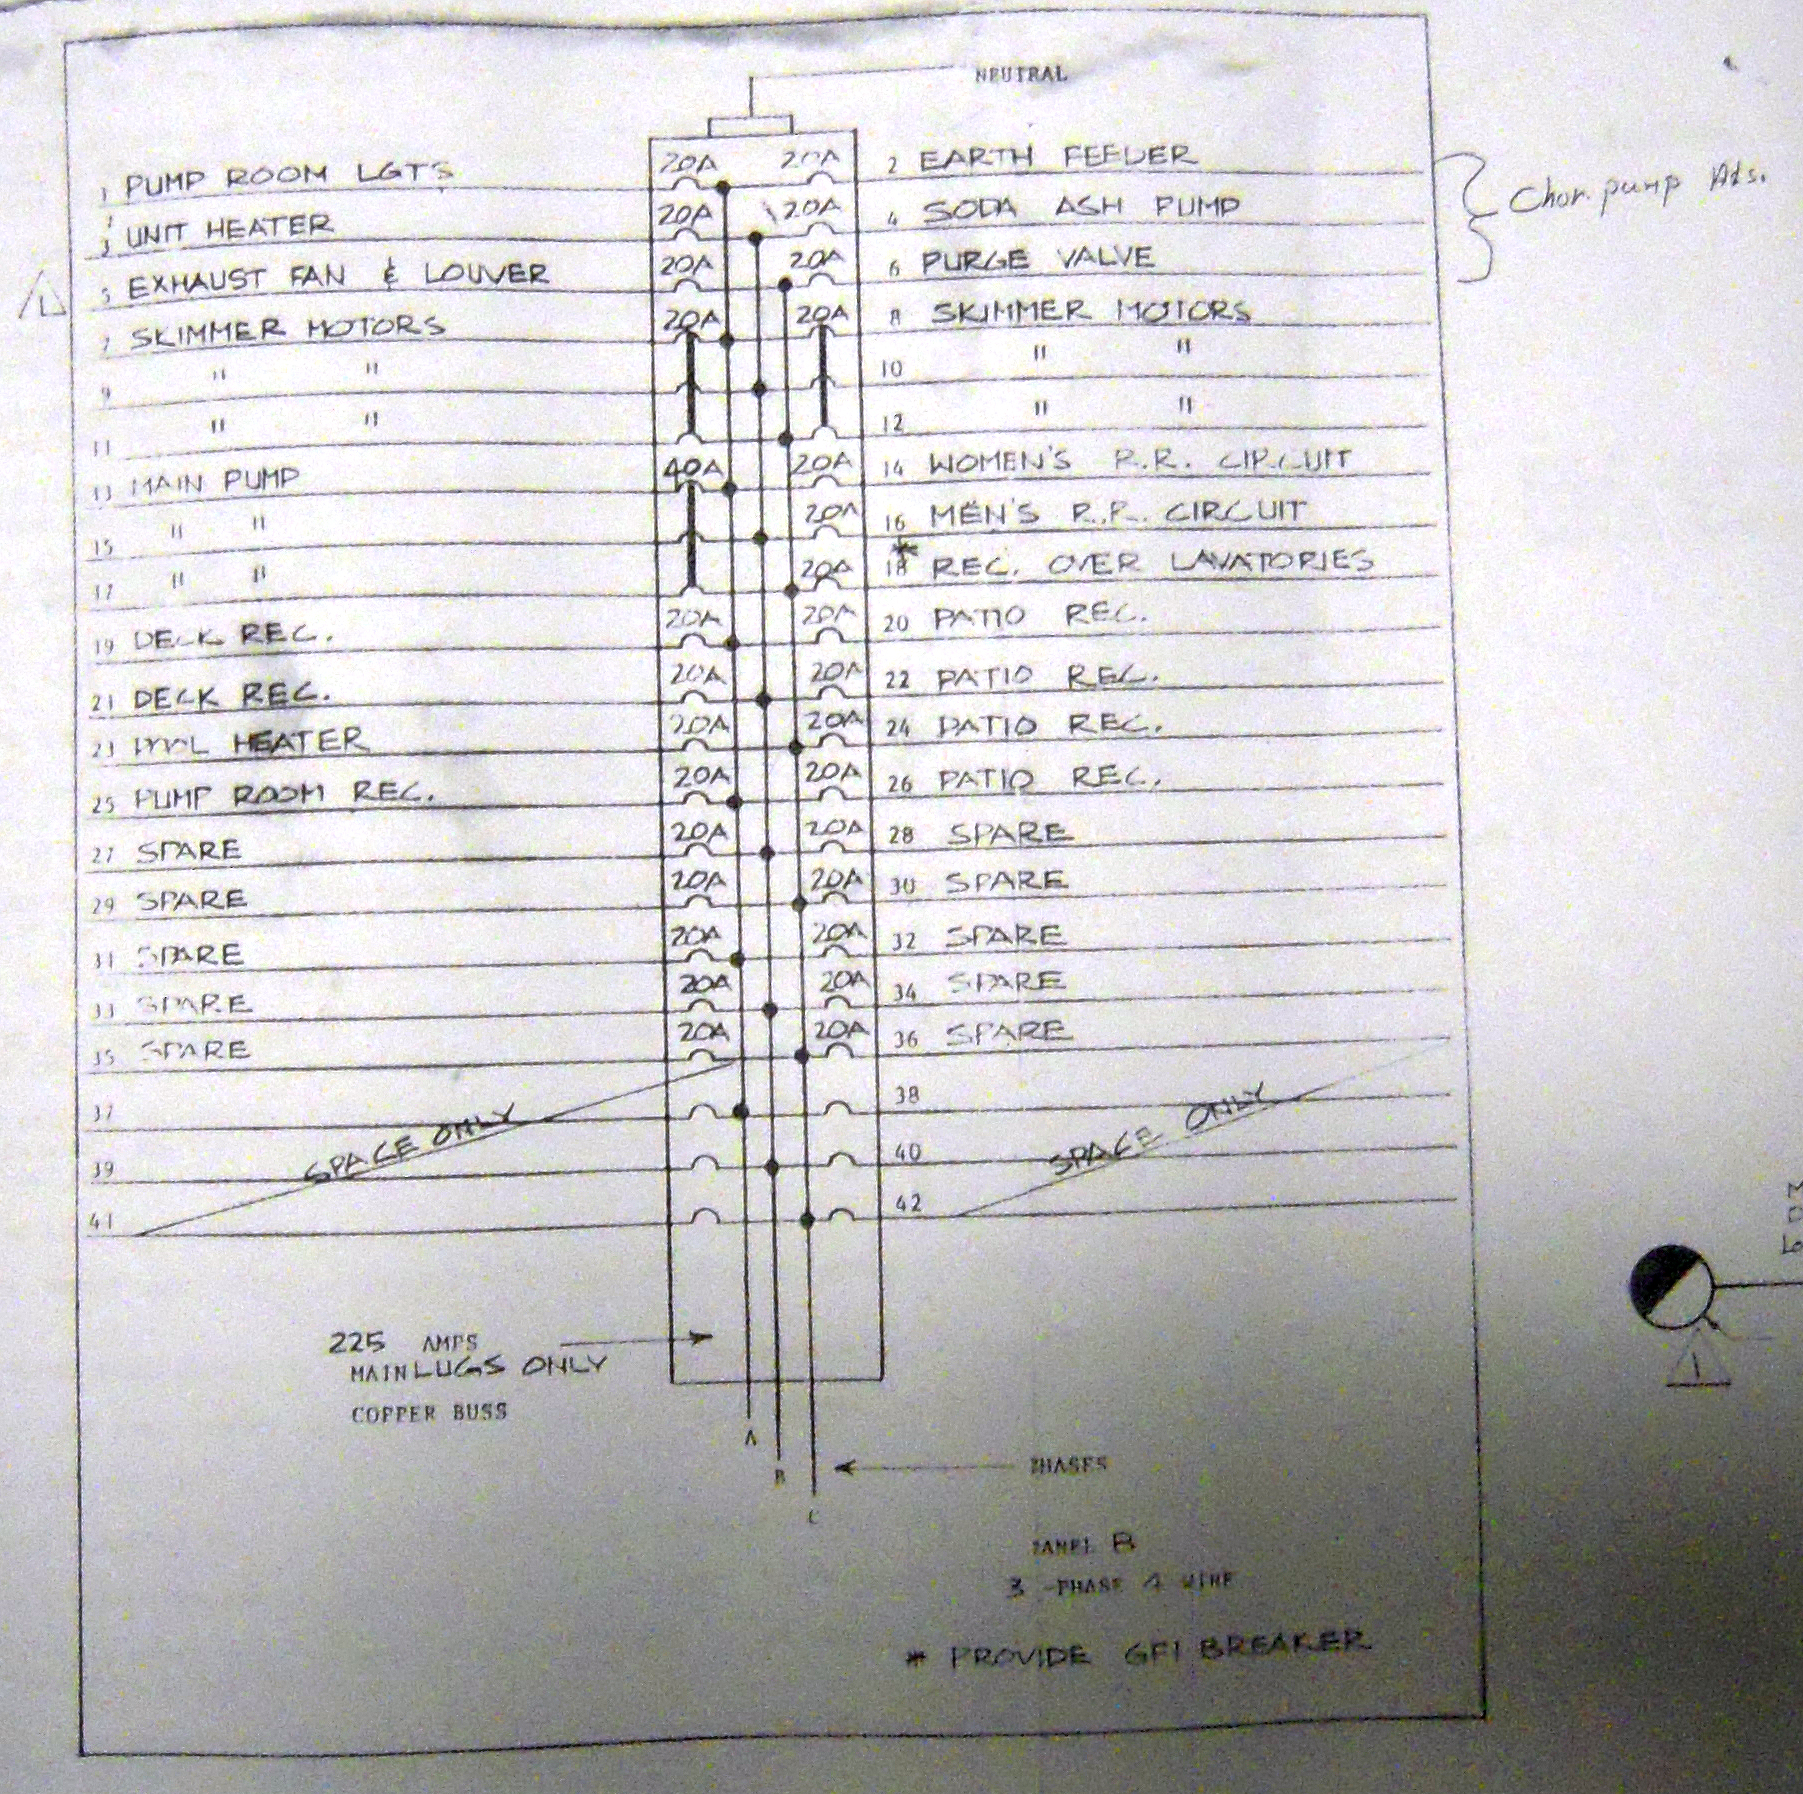 NEUTRAL
1 PUMP ROOM LGTS 20A 20A 2 EARTH FEEDER
3 UNIT HEATER 20A 20A 4 SODA ASH PUMP
Chor. pump
5 EXHAUST FAN & LOUVER 20A 20A 6 PURGE VALVE
1
7 SKIMMER MOTORS 20A 20A 8 SKIMMER MOTORS
9 " " 10 " "
11 " " 12 " "
13 MAIN PUMP 40A 20A 14 WOMEN'S R.R. CIRCUIT
15 " " 20A 16 MEN'S R.R. CIRCUIT
17 " " 20A 18 * REC. OVER LAVATORIES
19 DECK REC. 20A 20A 20 PATIO REC.
21 DECK REC. 20A 20A 22 PATIO REC.
23 POOL HEATER 20A 20A 24 PATIO REC.
25 PUMP ROOM REC. 20A 20A 26 PATIO REC.
27 SPARE 20A 20A 28 SPARE
29 SPARE 20A 20A 30 SPARE
31 SPARE 20A 20A 32 SPARE
33 SPARE 20A 20A 34 SPARE
35 SPARE 20A 20A 36 SPARE
37 38
SPACE ONLY SPACE ONLY
39 40
41 42
225 AMPS
MAIN LUGS ONLY
COPPER BUSS
A
B
C
PHASES
PANEL B
3 -PHASE 4 WIRE
* PROVIDE GFI BREAKER
1